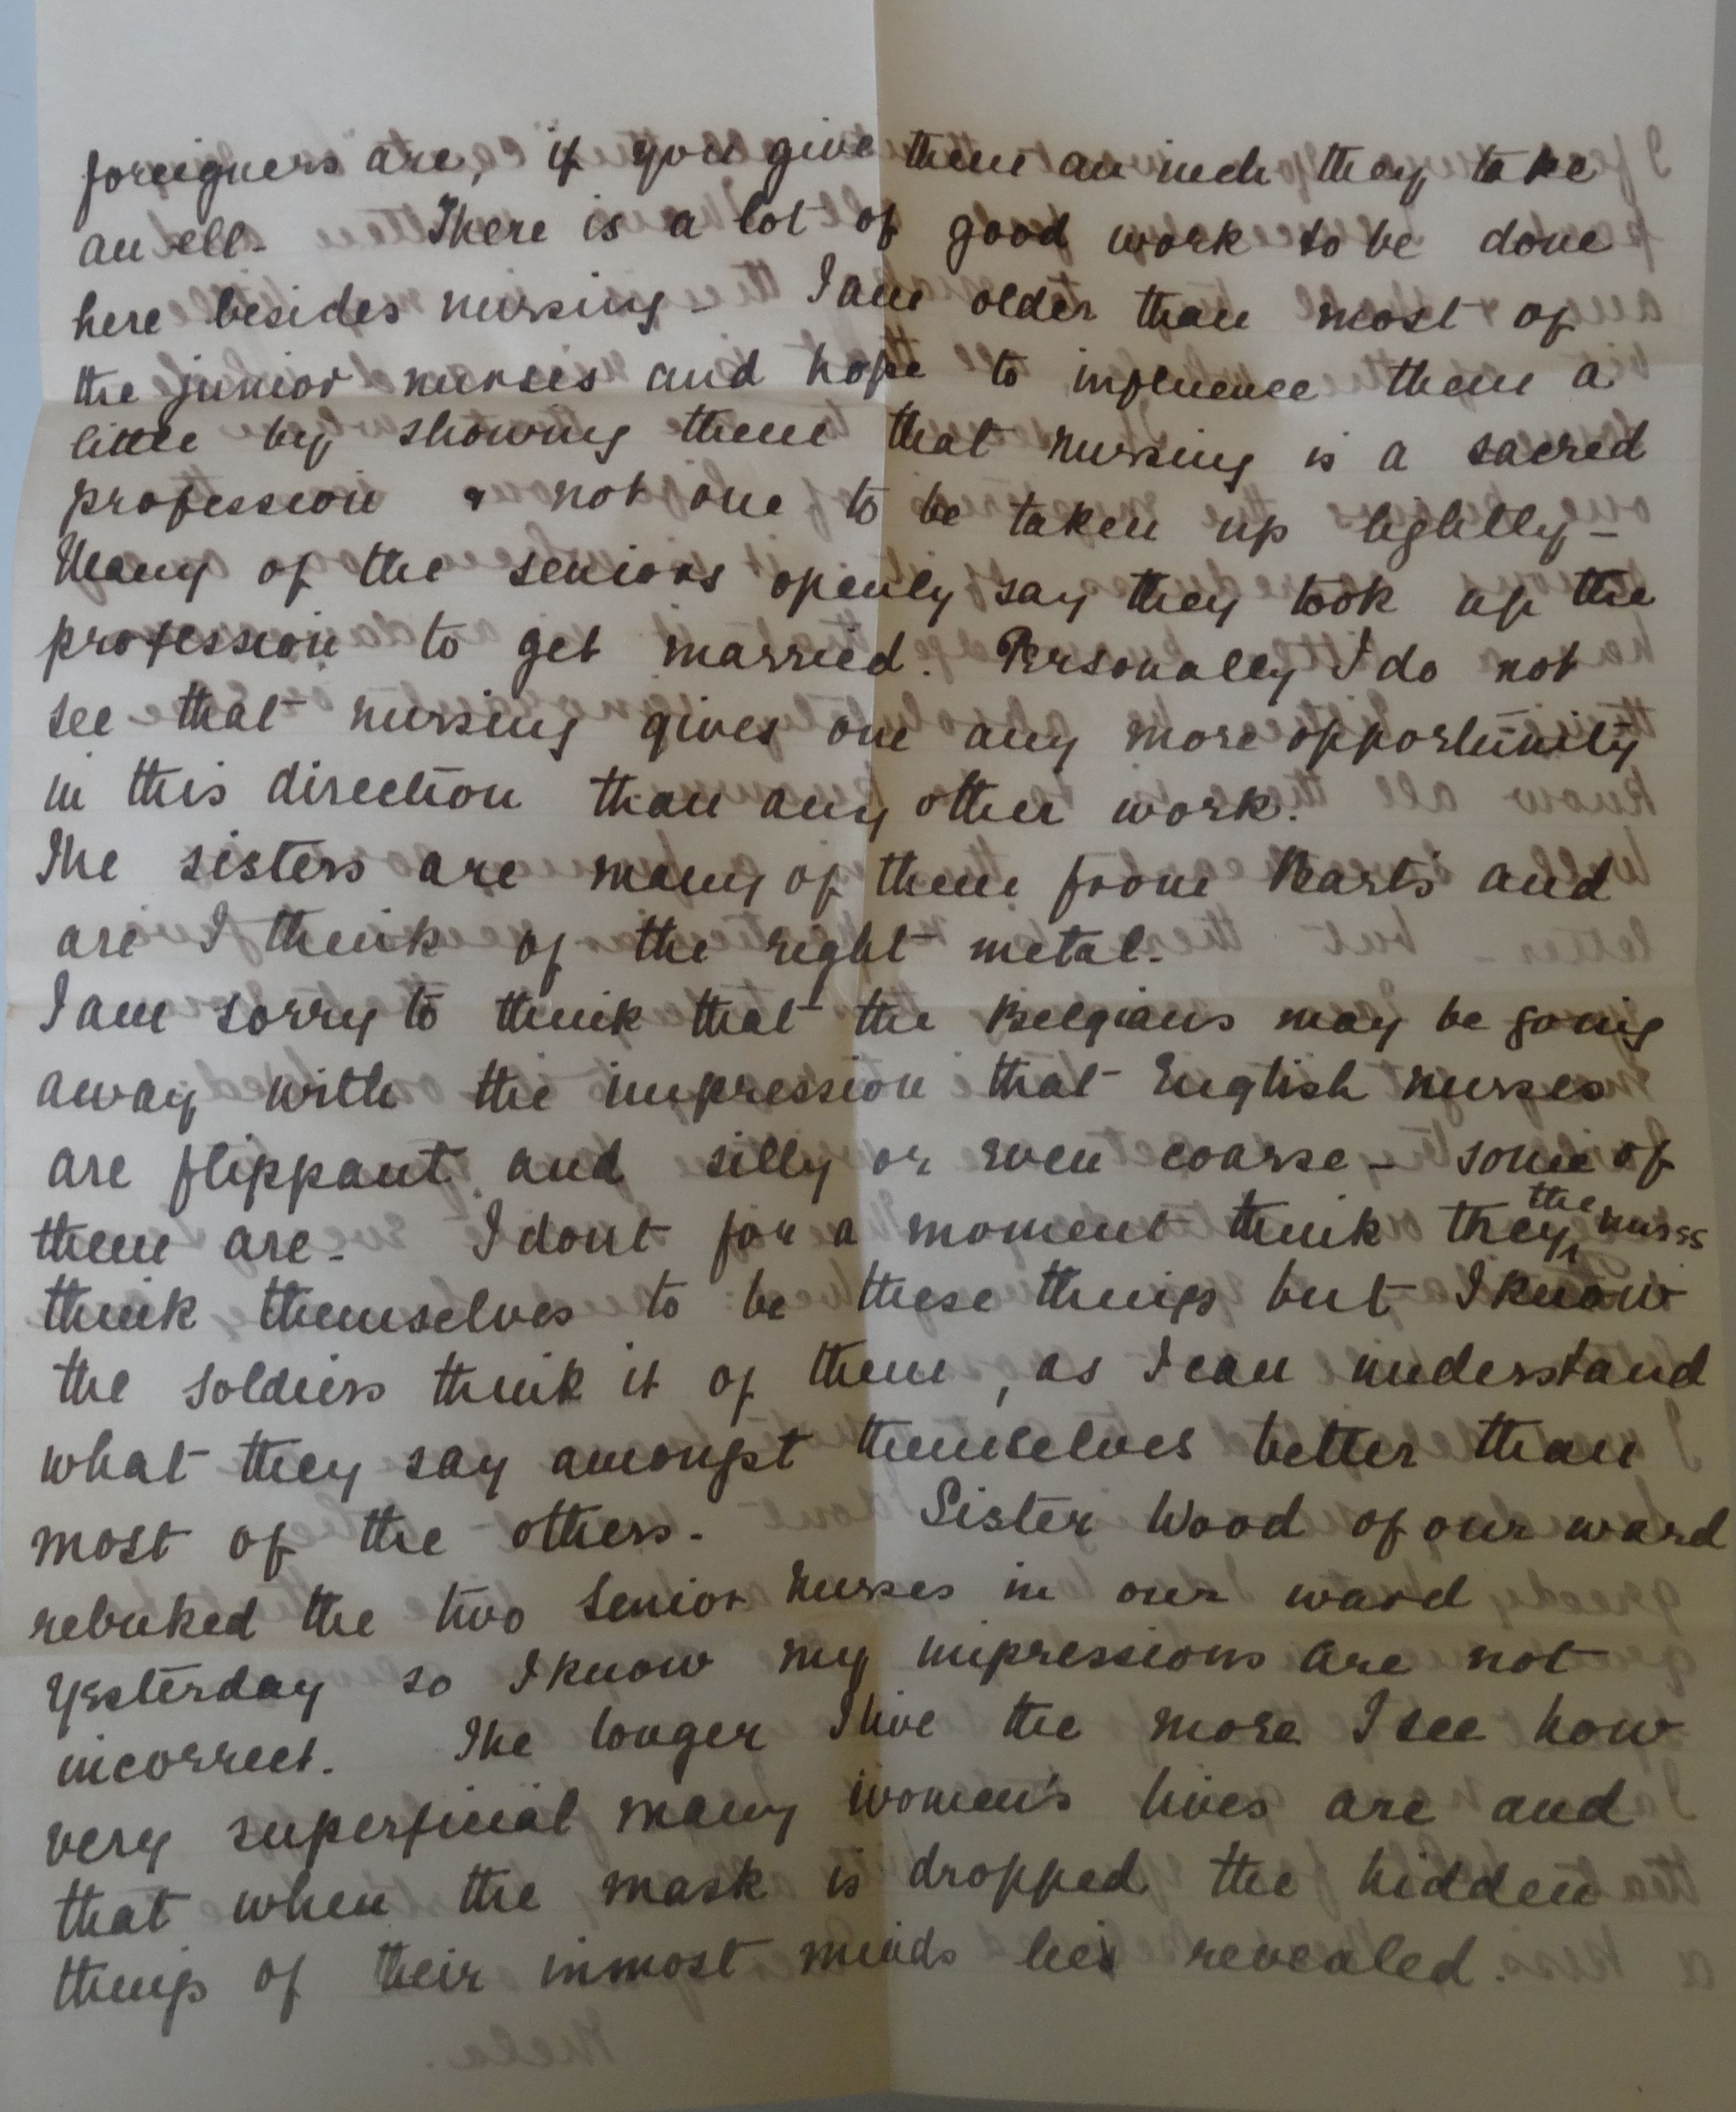 foreigners are, if you give them an inch they take
an ell. There is a lot of good work to be done
here besides nursing - I am older than most of
the junior nurses and hope to influence them a
little by showing them that nursing is a sacred
profession & not one to be taken up lightly -
Many of the seniors openly say they took up the
profession to get married. Personally I do not
see that nursing gives one any more opportunity
in this direction than any other work.
The sisters are many of them from Bart's and
are I think of the right metal.
I am sorry to think that the Belgians may be going
away with the impression that English nurses
are flippant and silly or even coarse - some of
them are - I dont for a moment think they the nurses
think themselves to be these things but I know
the soldiers think it of them, as I can understand
what they say amongst themselves better than
most of the others. Sister Wood of our ward
rebuked the two senior nurses in our ward
yesterday so I know my impressions are not
incorrect. The longer I live the more I see how
very superficial many women's lives are and
that when the mask is dropped the hidden
things of their inmost minds lies revealed.